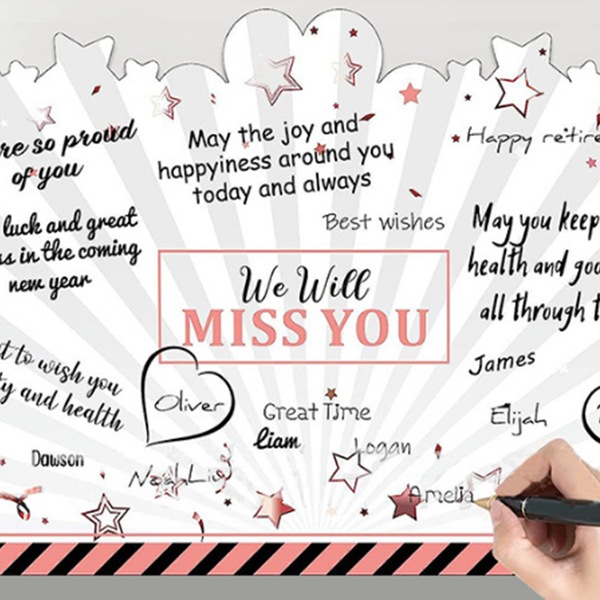 re so proud
of you
May the joy and
happyiness around you
today and always
Happy retire
Best wishes
luck and great
ss in the coming
new year
May you keep
health and goo
all through t
We Will
MISS YOU
t to wish you
ty and health
Oliver
Great Time
Liam
Logan
James
Elijah
Dawson
Noah Liu
Amelia